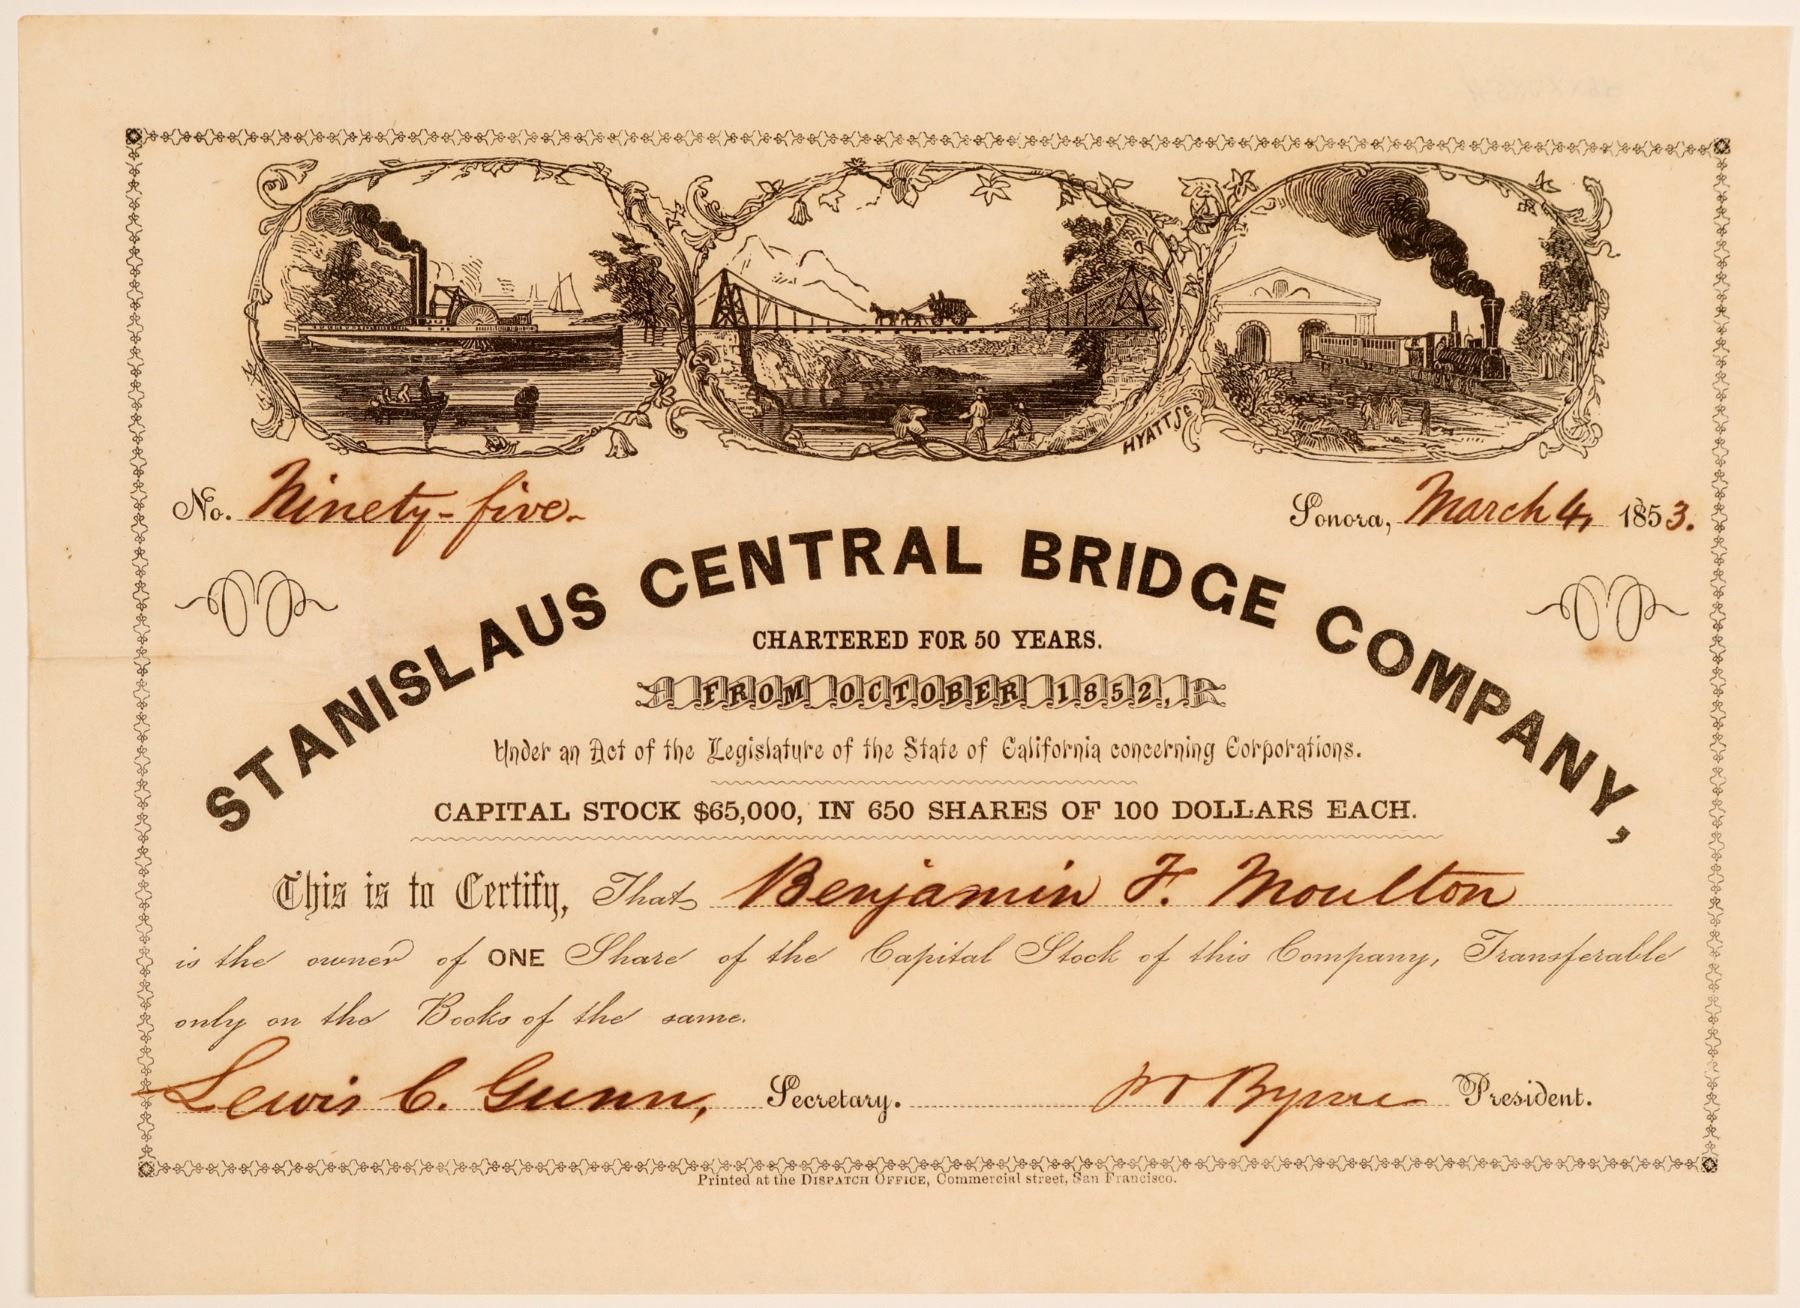 HYATT Sc
No. Ninety-five.
Sonora, March 4, 1853.
STANISLAUS CENTRAL BRIDGE COMPANY,
CHARTERED FOR 50 YEARS.
FROM OCTOBER 1852,
Under an Act of the Legislature of the State of California concerning Corporations.
CAPITAL STOCK $65,000, IN 650 SHARES OF 100 DOLLARS EACH.
This is to Certify, That Benjamin F. Moulton
is the owner of ONE Share of the Capital Stock of this Company, Transferable
only on the Books of the same.
Lewis C. Gunn, Secretary. Byrne President.
Printed at the DISPATCH OFFICE, Commercial street, San Francisco.